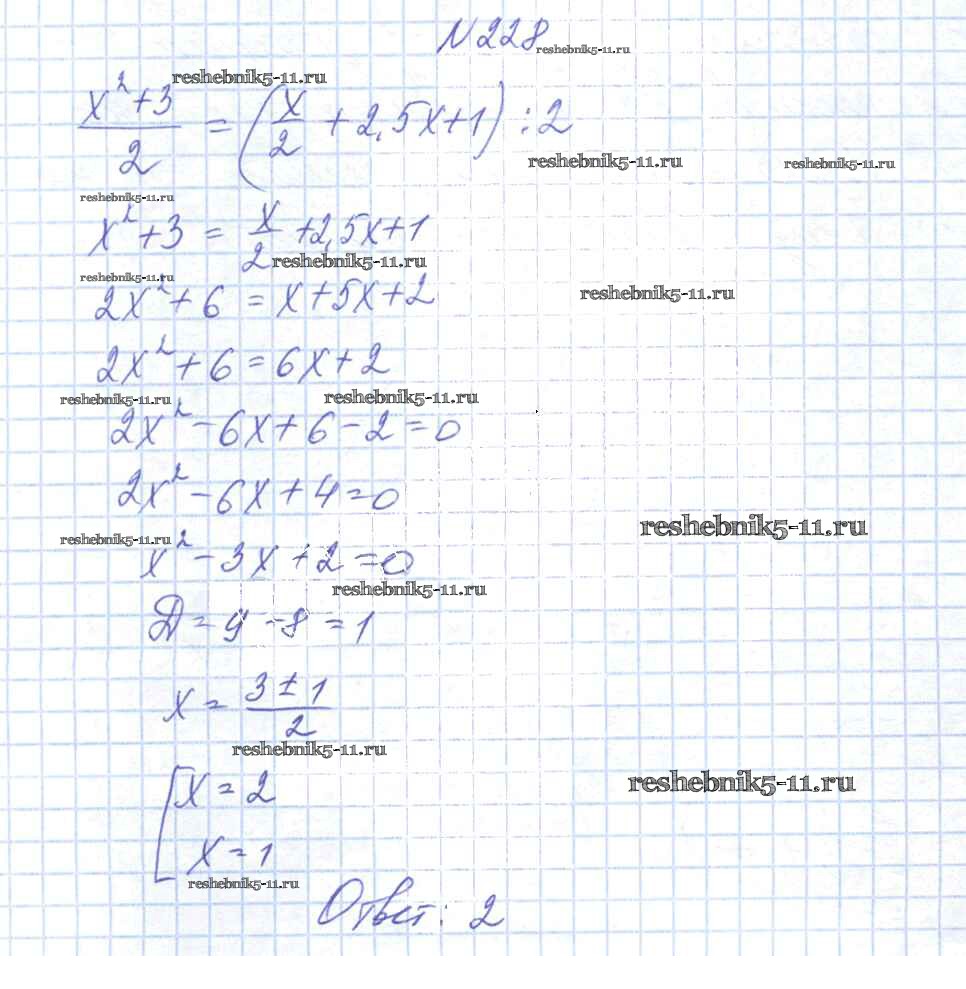 N 228 reshebnik5-11.ru
reshebnik5-11.ru
x²+3/2 = (x/2 + 2,5x+1) : 2
reshebnik5-11.ru reshebnik5-11.ru
reshebnik5-11.ru
x²+3 = x/2 +2,5x+1
reshebnik5-11.ru
reshebnik5-11.ru
2x²+6 = x+5x+2 reshebnik5-11.ru
2x²+6 = 6x+2
reshebnik5-11.ru reshebnik5-11.ru
2x²-6x+6-2=0
2x²-6x+4=0
reshebnik5-11.ru
reshebnik5-11.ru
x²-3x+2=0
reshebnik5-11.ru
Д=9-8=1
x = 3±1/2
reshebnik5-11.ru
[x=2
reshebnik5-11.ru
x=1
reshebnik5-11.ru
Ответ: 2